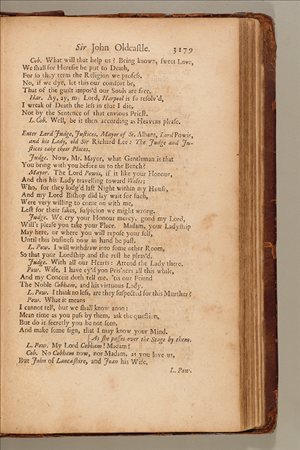 Sir John Oldcastle. 3179
Cob. What will that help us? Being known, sweet Love,
We shall for Heresie be put to Death,
For so they term the Religion we profess.
No, if we dye, let this our comfort be,
That of the guilt impos'd our Souls are free.
Har. Ay, ay, my Lord, Harpool is so resolv'd,
I wreak of Death the less in that I die,
Not by the sentence of that envious Priest.
L. Cob. Well, be it then according as Heavens please.
Enter Lord Judge, Justices, Mayor of St. Albans, Lord Powis,
and his Lady, old Sir Richard Lee: The Judge and Ju-
stices take their Places.
Judge. Now, Mr. Mayor, what Gentleman is that
You bring with you before us to the Bench?
Mayor. The Lord Powis, if it like your Honour,
And this his Lady travelling toward Wales;
Who, for they lodg'd last Night within my House,
And my Lord Bishop did lay wait for such,
Were very willing to come on with me,
Lest for their sakes, suspicion we might wrong.
Judge. We cry your Honour mercy, good my Lord,
Will't please you take your Place. Madam, your Ladyship
May here, or where you will repose your self,
Until this business now in hand be past.
L. Pow. I will withdraw into some other Room,
So that your Lordship and the rest be pleas'd.
Judge. With all our Hearts: Attend the Lady there.
Pow. Wife, I have ey'd yon Pris'ners all this while,
And my Conceit doth tell me, 'tis our Friend
The Noble Cobham, and his virtuous Lady.
L. Pow. I think no less, are they suspected for this Murther?
Pow. What it means
I cannot tell, but we shall know anon:
Mean time as you pass by them, ask the question,
But do it secretly you be not seen,
And make some sign, that I may know your Mind.
[As she passes over the Stage by them.
L. Pow. My Lord Cobham! Madam!
Cob. No Cobham now, nor Madam, as you love us,
But John of Lancashire, and Joan his Wife.
L. Pow.